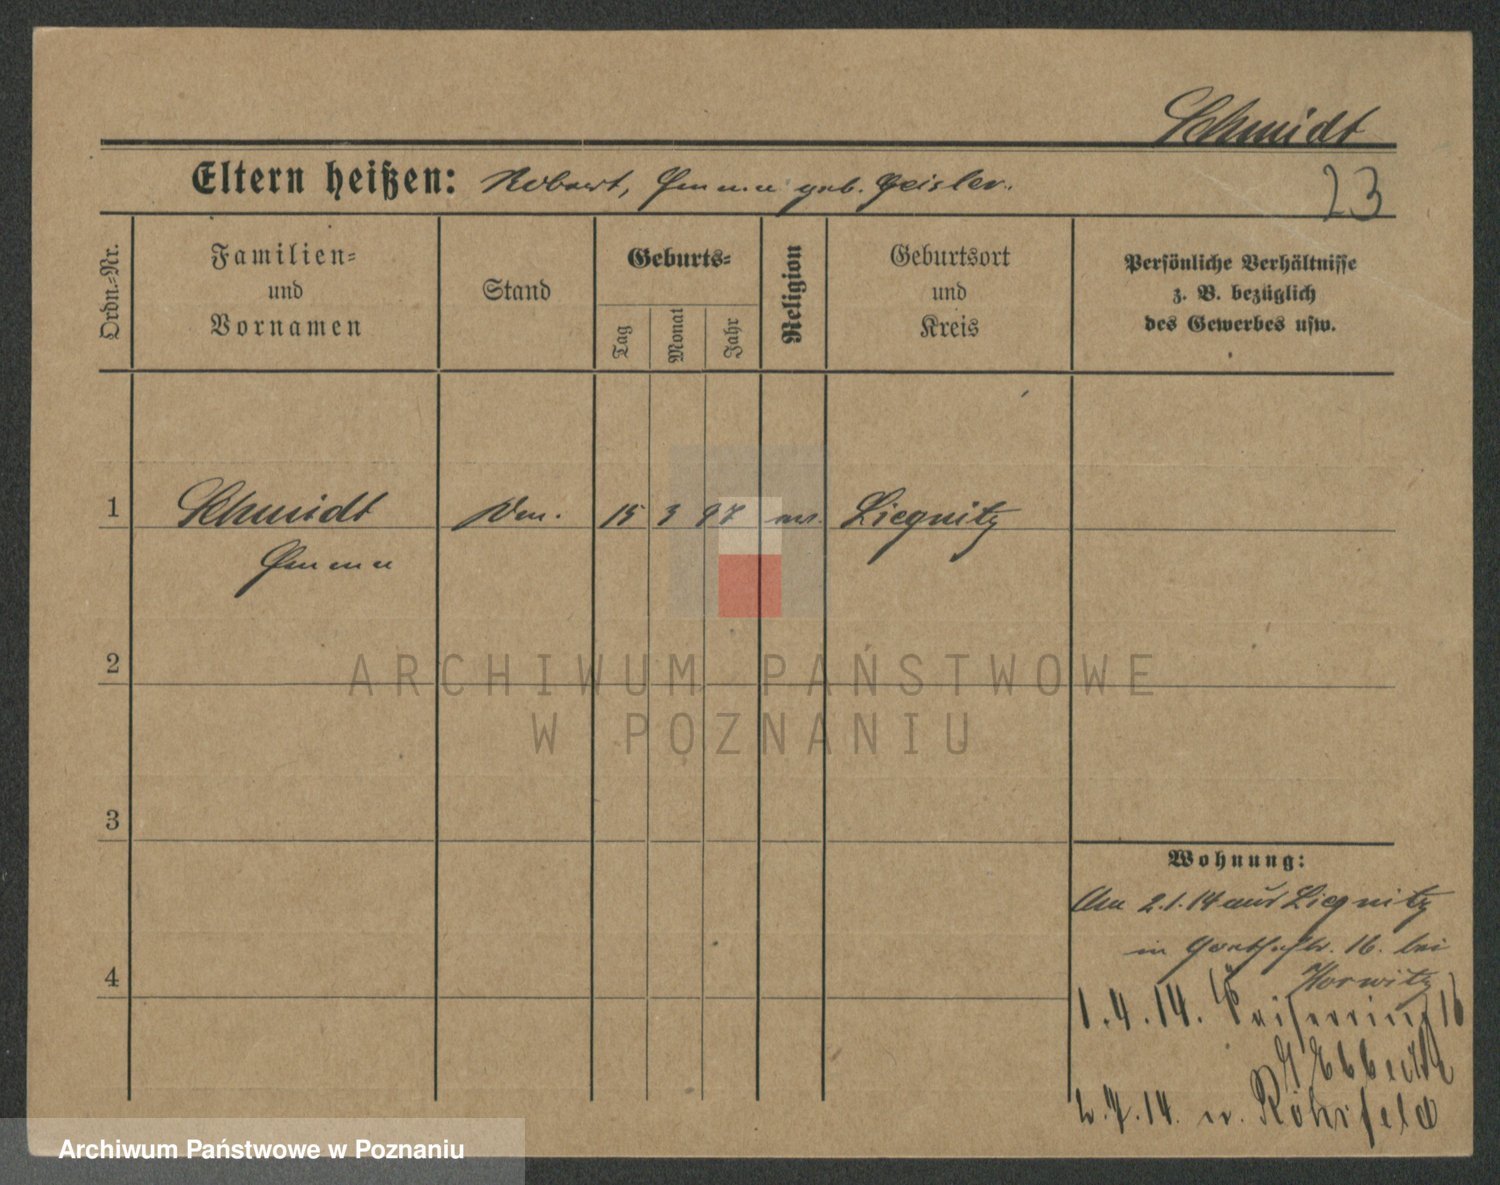 Schmidt
Eltern heißen: Robert, Emma geb. Geisler.
23
Ordn.-Nr.
Familien-
und
Vornamen
Stand
Geburts-
Tag
Monat
Jahr
Religion
Geburtsort
und
Kreis
Persönliche Verhältnisse
z. B. bezüglich
des Gewerbes usw.
1 Schmidt 15 3 97 Liegnitz
Emma
2
3
4
Wohnung:
Am 2.1.14 aus Liegnitz
in Goethestr. 16. bei
Horwitz
1.4.14. 16
2.7.14. n. Röhrsfeld
ARCHIWUM PAŃSTWOWE
W POZNANIU
Archiwum Państwowe w Poznaniu